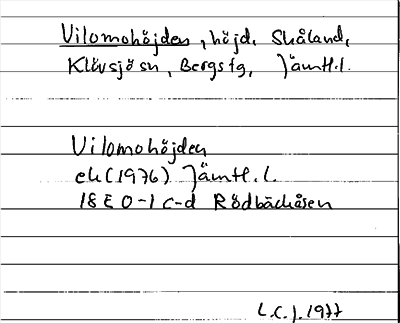 Vilomohöjden, höjd, Skåland,
Klövsjö sn, Bergs fg, Jämtl.l.
Vilomohöjden
ek (1976) Jämtl. l.
18 E 0-1 c-d Rödbäckåsen
L.C.J. 1977